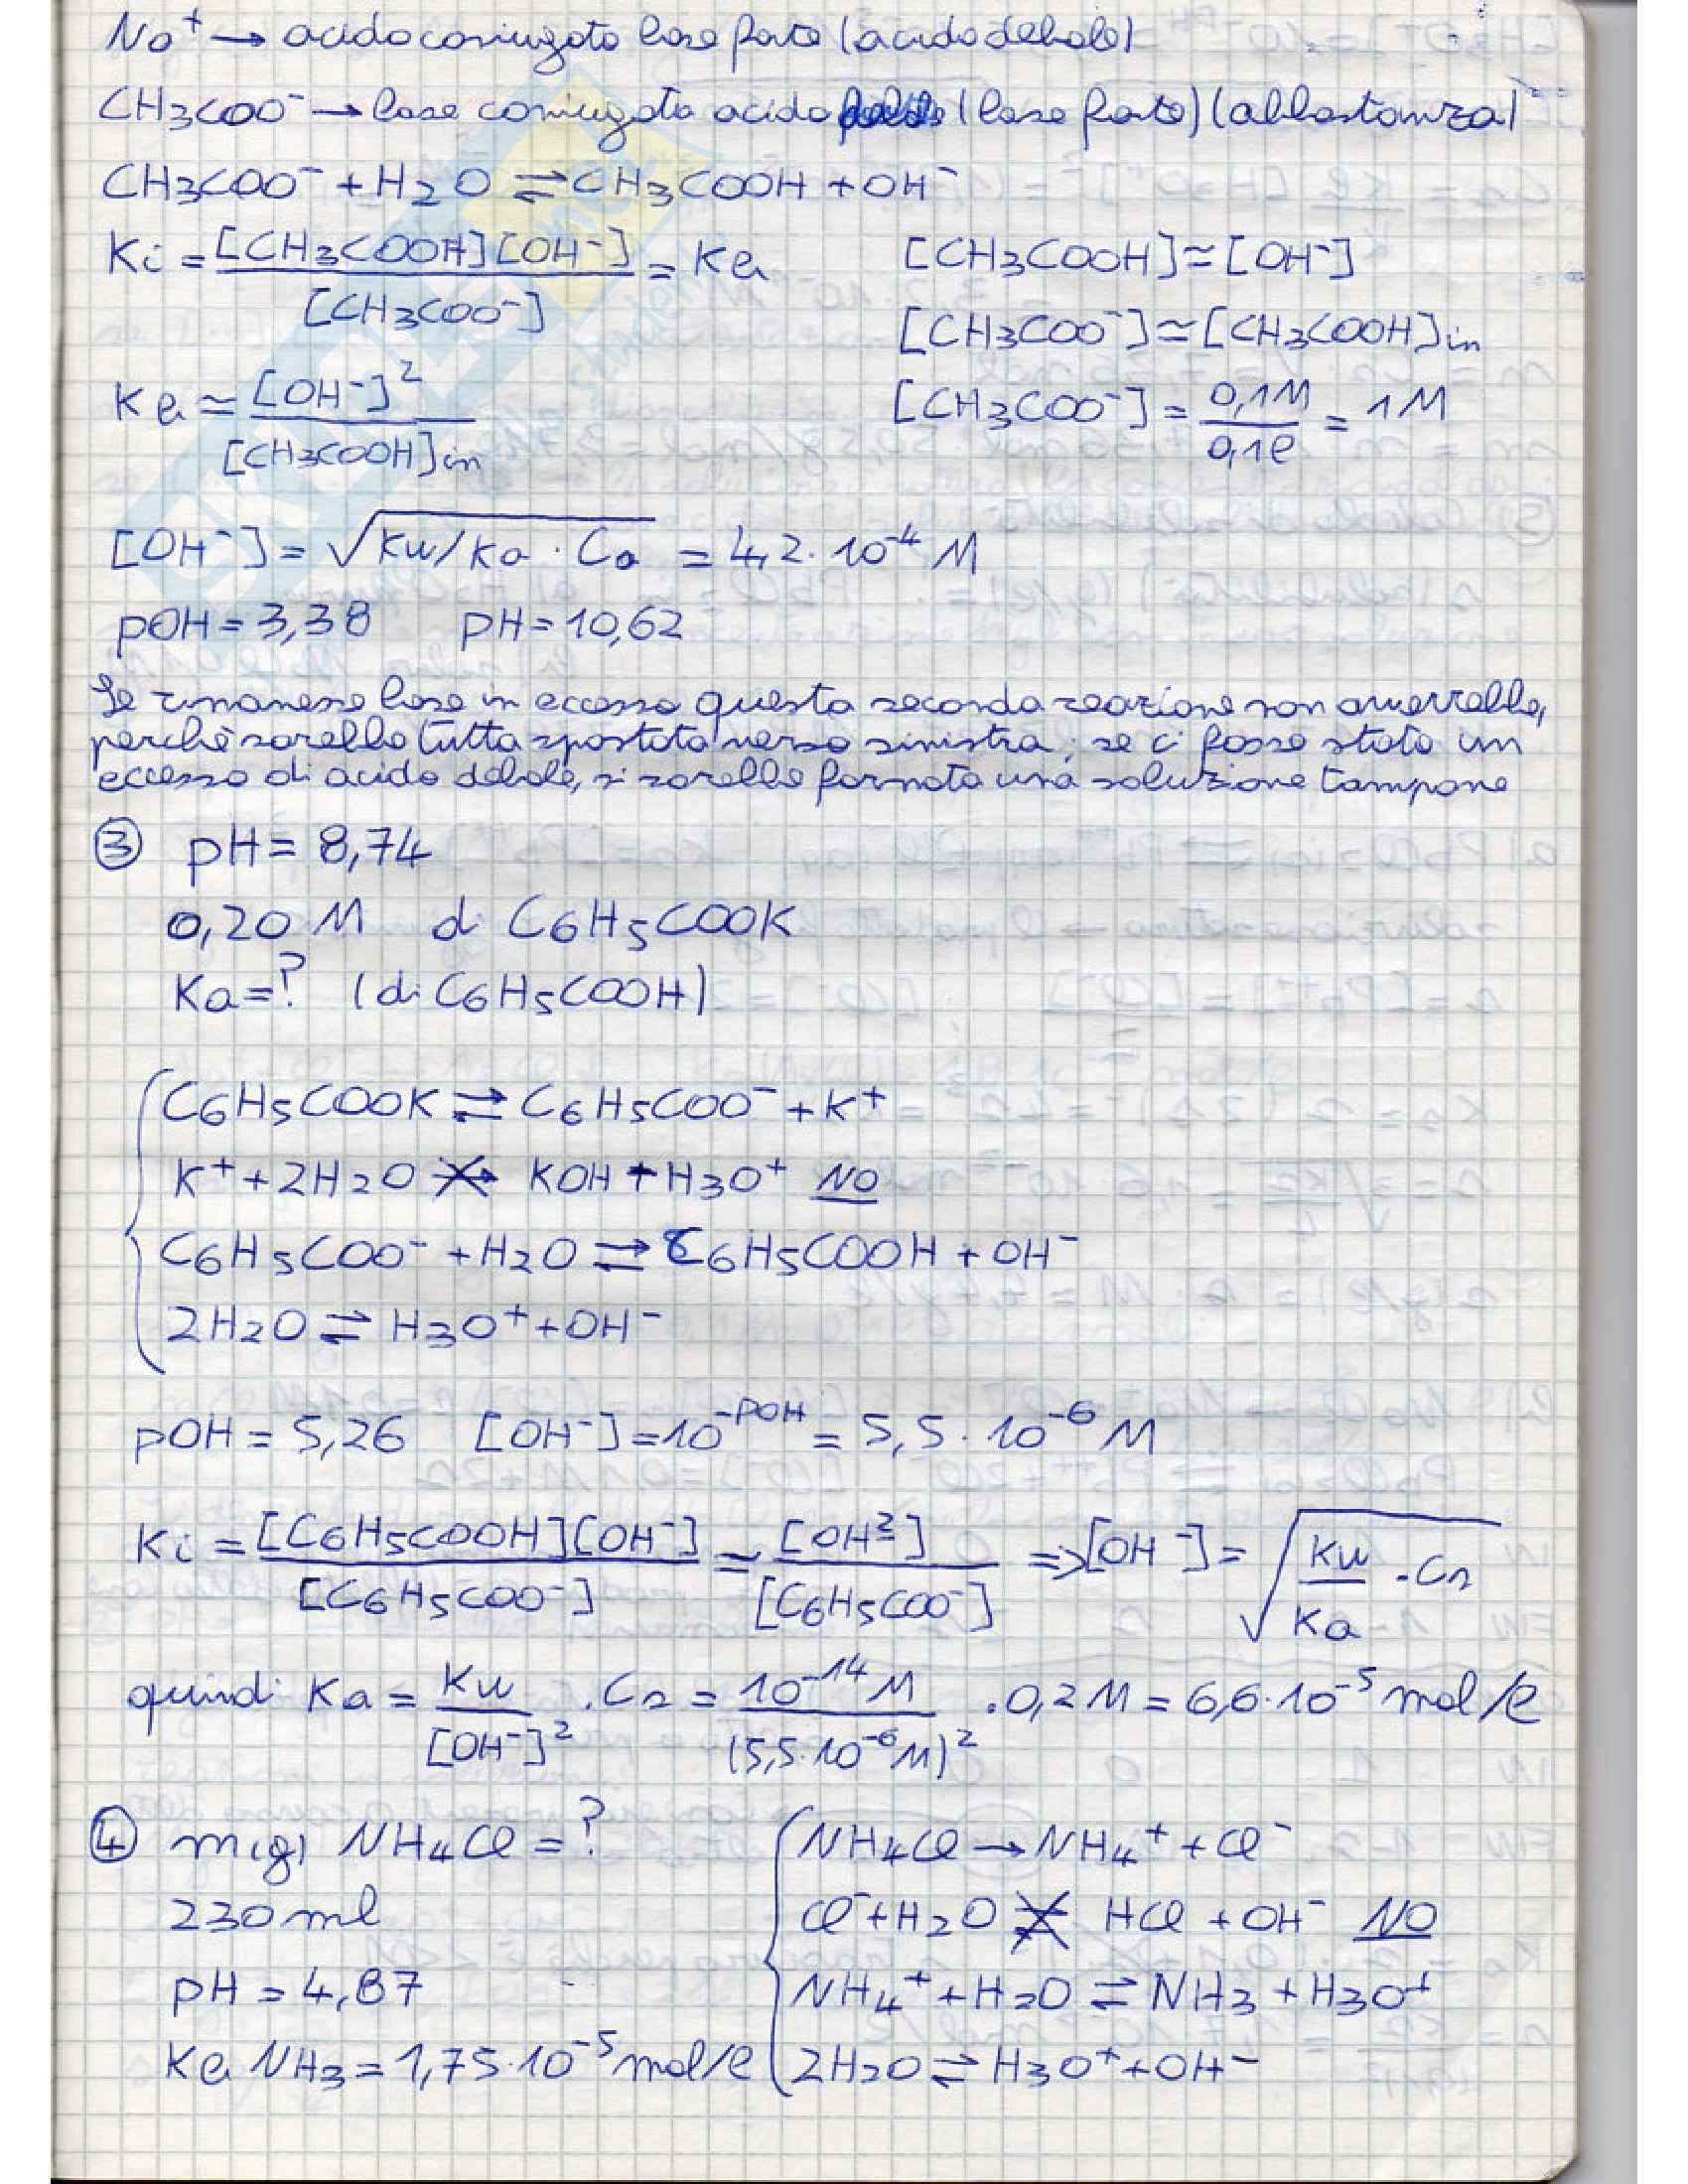 Na⁺ → acido coniugato base forte (acido debole)
CH3COO⁻ → base coniugata acido debole (base forte) (abbastanza)
CH3COO⁻ + H2O ⇌ CH3COOH + OH⁻
Ki = [CH3COOH][OH⁻] / [CH3COO⁻] = Kb [CH3COOH] ≃ [OH⁻]
[CH3COO⁻] ≃ [CH3COOH]in
Kb ≃ [OH⁻]² / [CH3COOH]in [CH3COO⁻] = 0,1M / 0,1l = 1M
[OH⁻] = √Kw/Ka · Ca = 4,2 · 10⁻⁴ M
pOH = 3,38 pH = 10,62
Se rimanesse base in eccesso questa seconda reazione non avverrebbe,
perchè sarebbe tutta spostata verso sinistra; se ci fosse stato un
eccesso di acido debole, si sarebbe formata una soluzione tampone
③ pH = 8,74
0,20 M di C6H5COOK
Ka = ? (di C6H5COOH)
C6H5COOK ⇌ C6H5COO⁻ + K⁺
K⁺ + 2H2O ↛ KOH + H3O⁺ NO
C6H5COO⁻ + H2O ⇌ C6H5COOH + OH⁻
2H2O ⇌ H3O⁺ + OH⁻
pOH = 5,26 [OH⁻] = 10^-pOH = 5,5 · 10⁻⁶ M
Ki = [C6H5COOH][OH⁻] / [C6H5COO⁻] ≃ [OH²] / [C6H5COO⁻] => [OH⁻] = √Kw / Ka · Cs
quindi Ka = Kw / [OH⁻]² · Cs = 10⁻¹⁴ M / (5,5 · 10⁻⁶ M)² · 0,2 M = 6,6 · 10⁻⁵ mol/l
④ m(g) NH4Cl = ? NH4Cl → NH4⁺ + Cl⁻
230 ml Cl⁻ + H2O ⇌̸ HCl + OH⁻ NO
pH = 4,87 NH4⁺ + H2O ⇌ NH3 + H3O⁺
Kb NH3 = 1,75 · 10⁻⁵ mol/l 2H2O ⇌ H3O⁺ + OH⁻